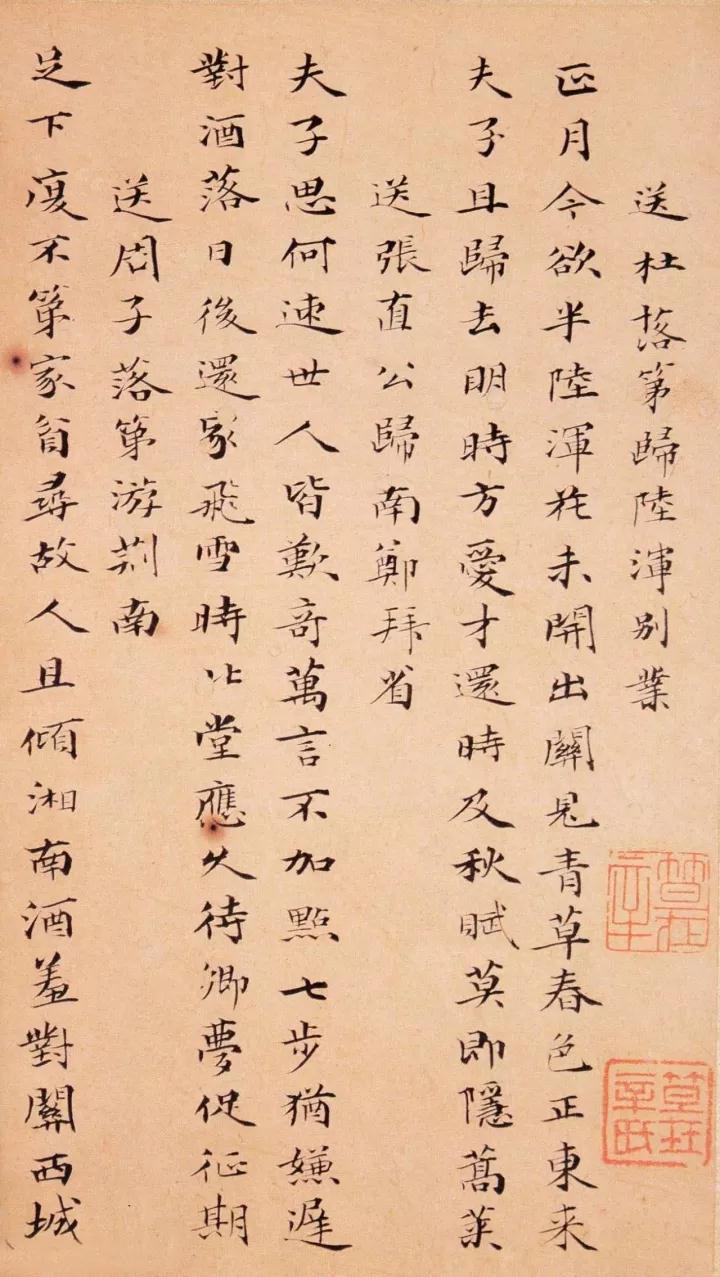 送杜落第歸陸渾別業
正月今欲半陸渾花未開出關見青草春色正東來
夫子且歸去明時方愛才還時及秋賦莫即隱蒿萊
送張直公歸南鄭拜省
夫子思何速世人皆歎奇萬言不加點七步猶嫌遲
對酒落日後還家飛雪時北堂應久待鄉夢促征期
送周子落第游荆南
足下復不第家貧尋故人且傾湘南酒羞對關西城